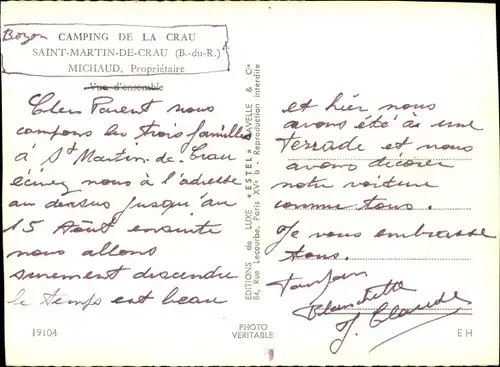 CAMPING DE LA CRAU
SAINT-MARTIN-DE-CRAU (B.-du-R.)
MICHAUD, Propriétaire
Vue d'ensemble
Cher Parent nous
campons les trois familles
à St Martin-de-Crau
écivez nous à l'adresse
au dessus jusqu'au
15 Août ensuite
nous allons
surement descendre
le temps est beau
19104
EDITIONS de LUXE « ESTEL » LAVELLE & Cie
84, Rue Lecourbe, Paris XVe b - Reproduction interdite
PHOTO
VERITABLE
et hier nous
avons été à une
ferrade et nous
avons décorer
notre voiture
comme tous.
Je vous embrasse
tous.
Blanchette
J. Claude
EH